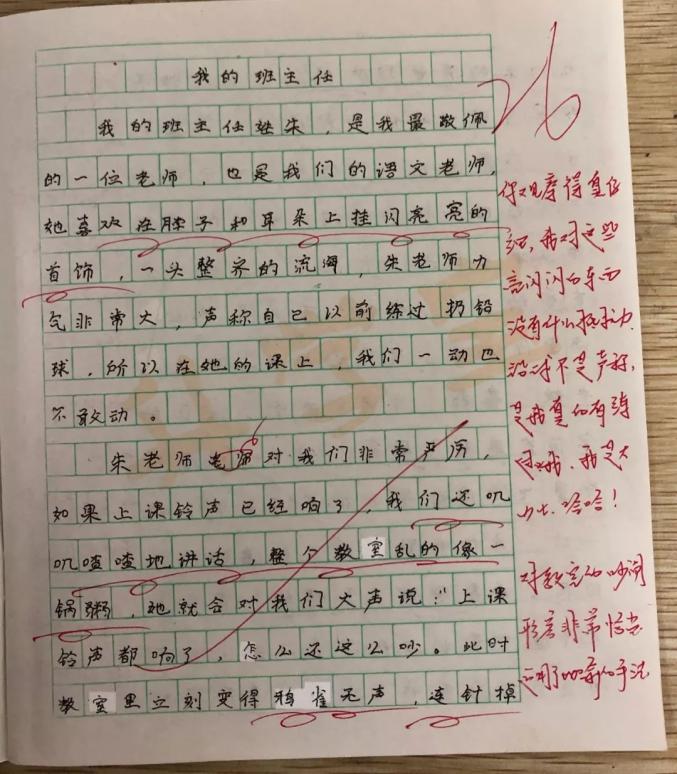 我的班主任
26
我的班主任姓朱，是我最敬佩
的一位老师，也是我们的语文老师，
她喜欢在脖子和耳朵上挂闪亮亮的
首饰，一头整齐的流海，朱老师力
气非常大，声称自己以前练过扔铅
球，所以在她的课上，我们一动也
不敢动。
朱老师老师对我们非常严厉，
如果上课铃声已经响了，我们还叽
叽喳喳地讲话，整个教室乱的像一
锅粥，她就会对我们大声说："上课
铃声都响了，怎么还这么吵。此时
教室里立刻变得鸦雀无声，连针掉
你观察得真仔
我对这些
亮闪闪的东西
没有什么抵抗力
不是声称，
是我真的有练
过 我是大
力士，哈哈！
对教室的吵闹
形容非常恰当
运用了比喻的手法